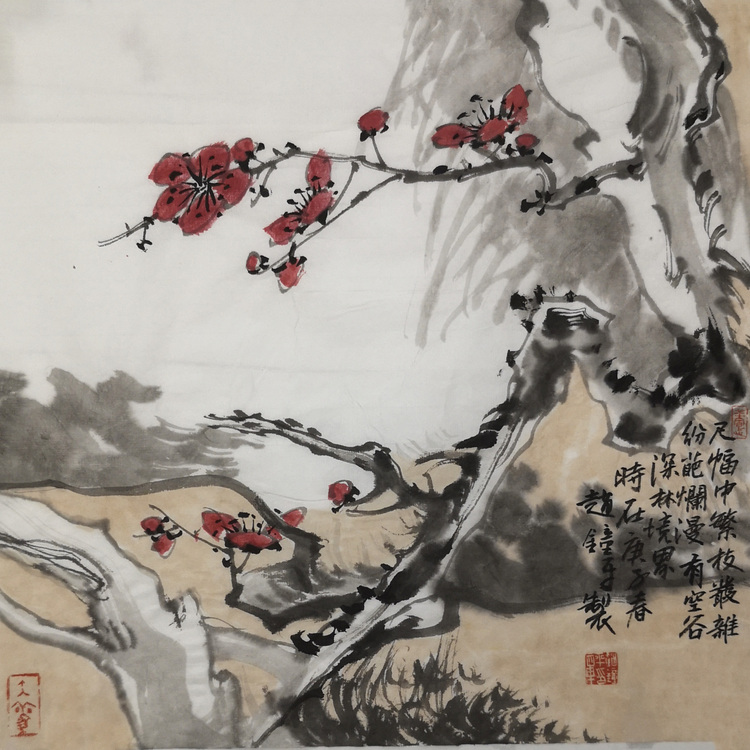 尺幅中繁枝叢雜
紛葩爛漫有空谷
深林境界
時在庚子春
趙鐘
製